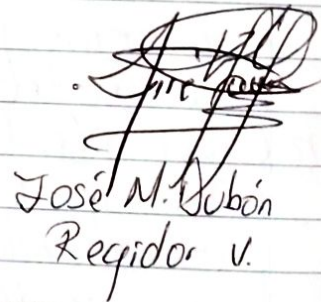 José M. Dubón
Regidor V.